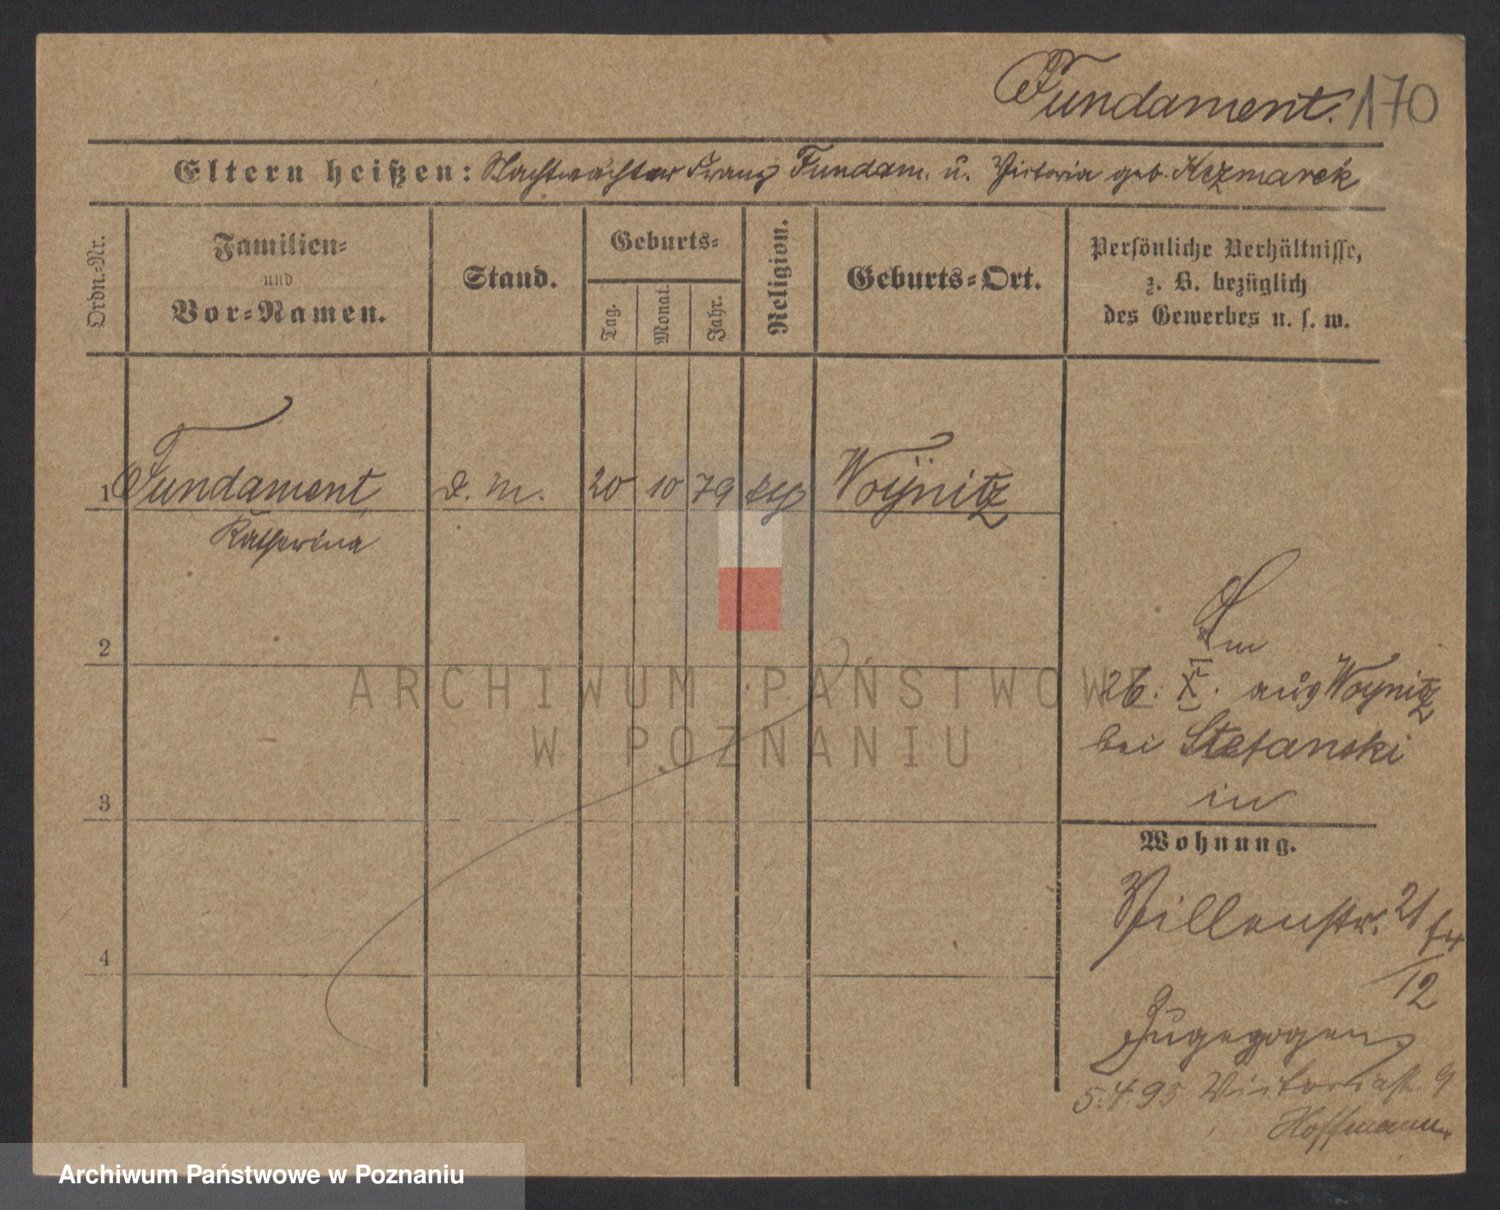 Fundament. 170
Eltern heißen: Nachtwächter Franz Fundam. u. Victoria geb. Kezmarek
Ordn.=Nr.
Familien=
und
Vor=Namen.
Stand.
Geburts=
Tag.
Monat.
Jahr.
Religion.
Geburts=Ort.
Persönliche Verhältnisse,
z. B. bezüglich
des Gewerbes u. s. w.
1 Fundament, d. M. 20 10 79 Woÿnitz
Katherina
2
3
4
Am
26. X. aus Woynitz
bei Stefanski
in
Wohnung.
Villenstr. 21
12
Zugezogen
5.4.93 Victoriastr. 9
Hoffmann
ARCHIWUM PAŃSTWOWE
W POZNANIU
Archiwum Państwowe w Poznaniu